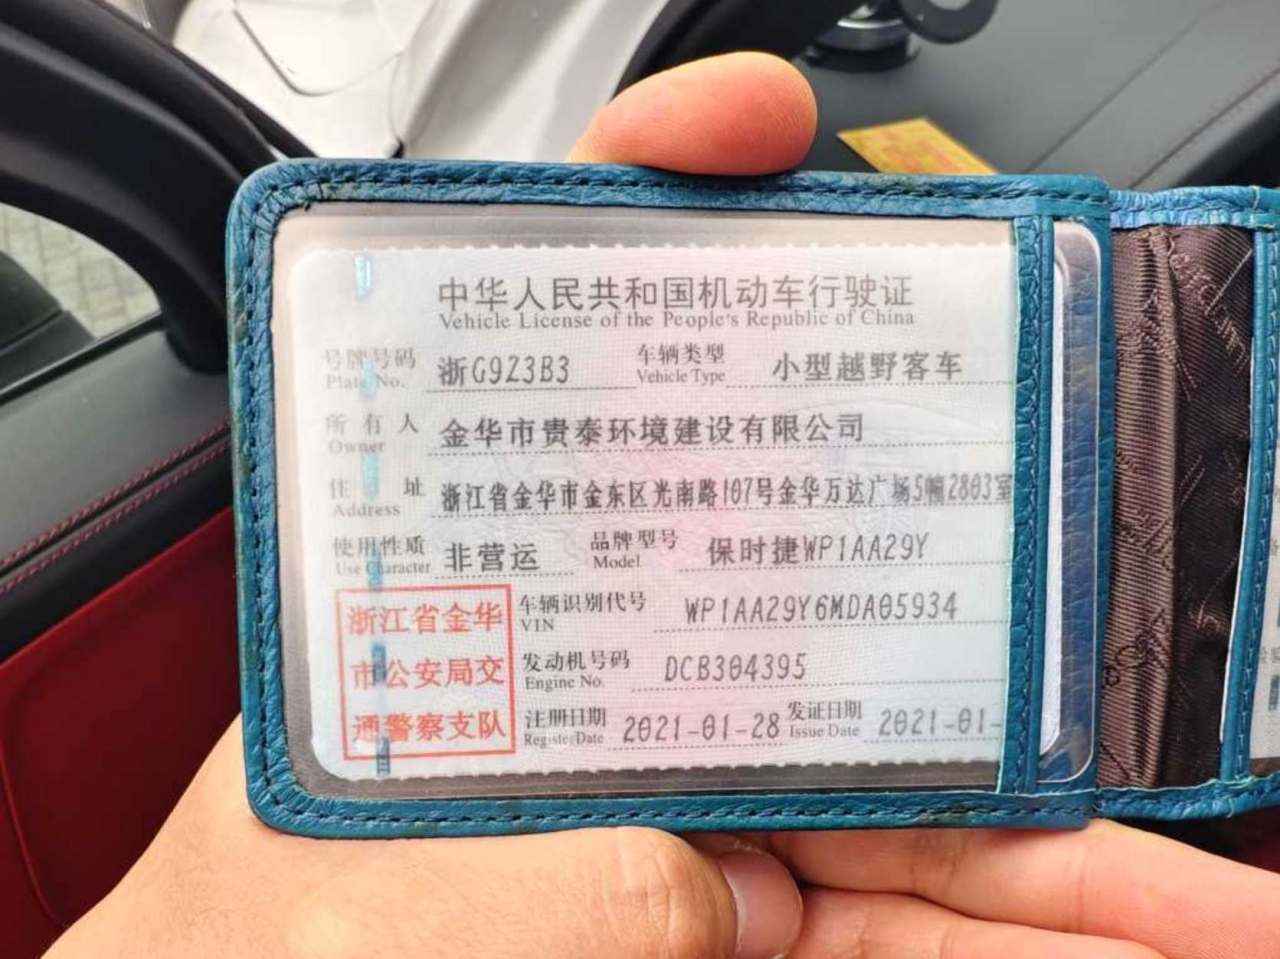 中华人民共和国机动车行驶证
Vehicle License of the People's Republic of China
号牌号码 浙G9Z3B3 车辆类型 小型越野客车
Plate No. Vehicle Type
所有人 金华市贵泰环境建设有限公司
Owner
住址 浙江省金华市金东区光南路107号金华万达广场5幢2803室
Address
使用性质 非营运 品牌型号 保时捷WP1AA29Y
Use Character Model
浙江省金华
市公安局交
通警察支队
车辆识别代号 WP1AA29Y6MDA05934
VIN
发动机号码 DCB304395
Engine No.
注册日期 2021-01-28 发证日期 2021-01-
Register Date Issue Date